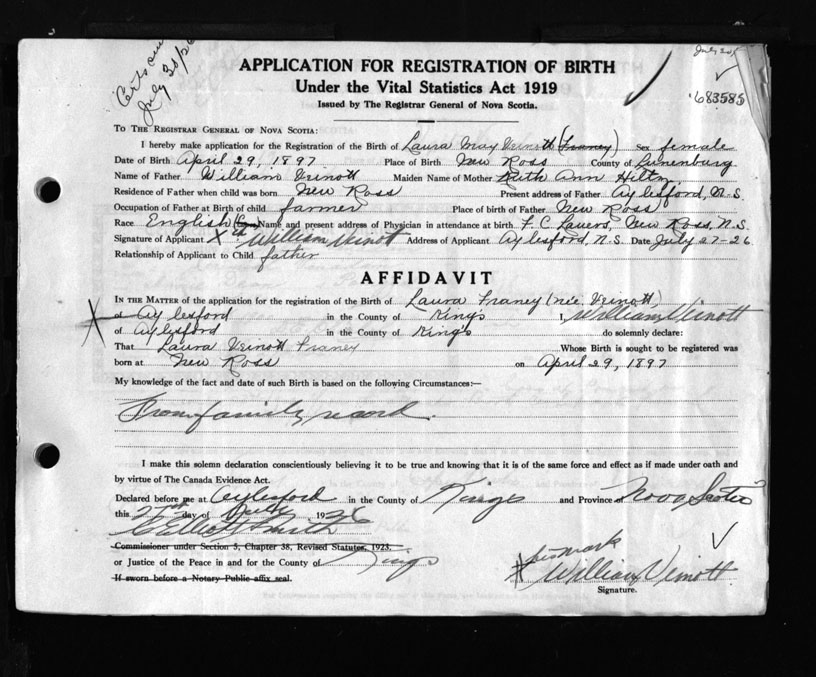 Certs
July 30/26
July 30/
683585
APPLICATION FOR REGISTRATION OF BIRTH
Under the Vital Statistics Act 1919
Issued by The Registrar General of Nova Scotia.
TO THE REGISTRAR GENERAL OF NOVA SCOTIA:
I hereby make application for the Registration of the Birth of Laura May Veinott (Franey) Sex female
Date of Birth April 29, 1897 Place of Birth New Ross County of Lunenburg
Name of Father William Veinott Maiden Name of Mother Ruth Ann Hiltz
Residence of Father when child was born New Ross Present address of Father Aylesford, N.S.
Occupation of Father at Birth of child farmer Place of birth of Father New Ross
Race English Name and present address of Physician in attendance at birth F. C. Lavers, New Ross, N.S.
Signature of Applicant X William Veinott Address of Applicant Aylesford, N.S. Date July 27-26
Relationship of Applicant to Child father
AFFIDAVIT
IN THE MATTER of the application for the registration of the Birth of Laura Franey (née Veinott)
of Aylesford in the County of King's I, William Veinott
of Aylesford in the County of King's do solemnly declare:
That Laura Veinott Franey Whose Birth is sought to be registered was
born at New Ross on April 29, 1897
My knowledge of the fact and date of such Birth is based on the following Circumstances:—
From family record.
I make this solemn declaration conscientiously believing it to be true and knowing that it is of the same force and effect as if made under oath and
by virtue of The Canada Evidence Act.
Declared before me at Aylesford in the County of Kings and Province Nova Scotia
this 27th day of July 1926
Commissioner under Section 5, Chapter 38, Revised Statutes, 1923.
or Justice of the Peace in and for the County of Kings
If sworn before a Notary Public affix seal.
his mark
X William Veinott
Signature.